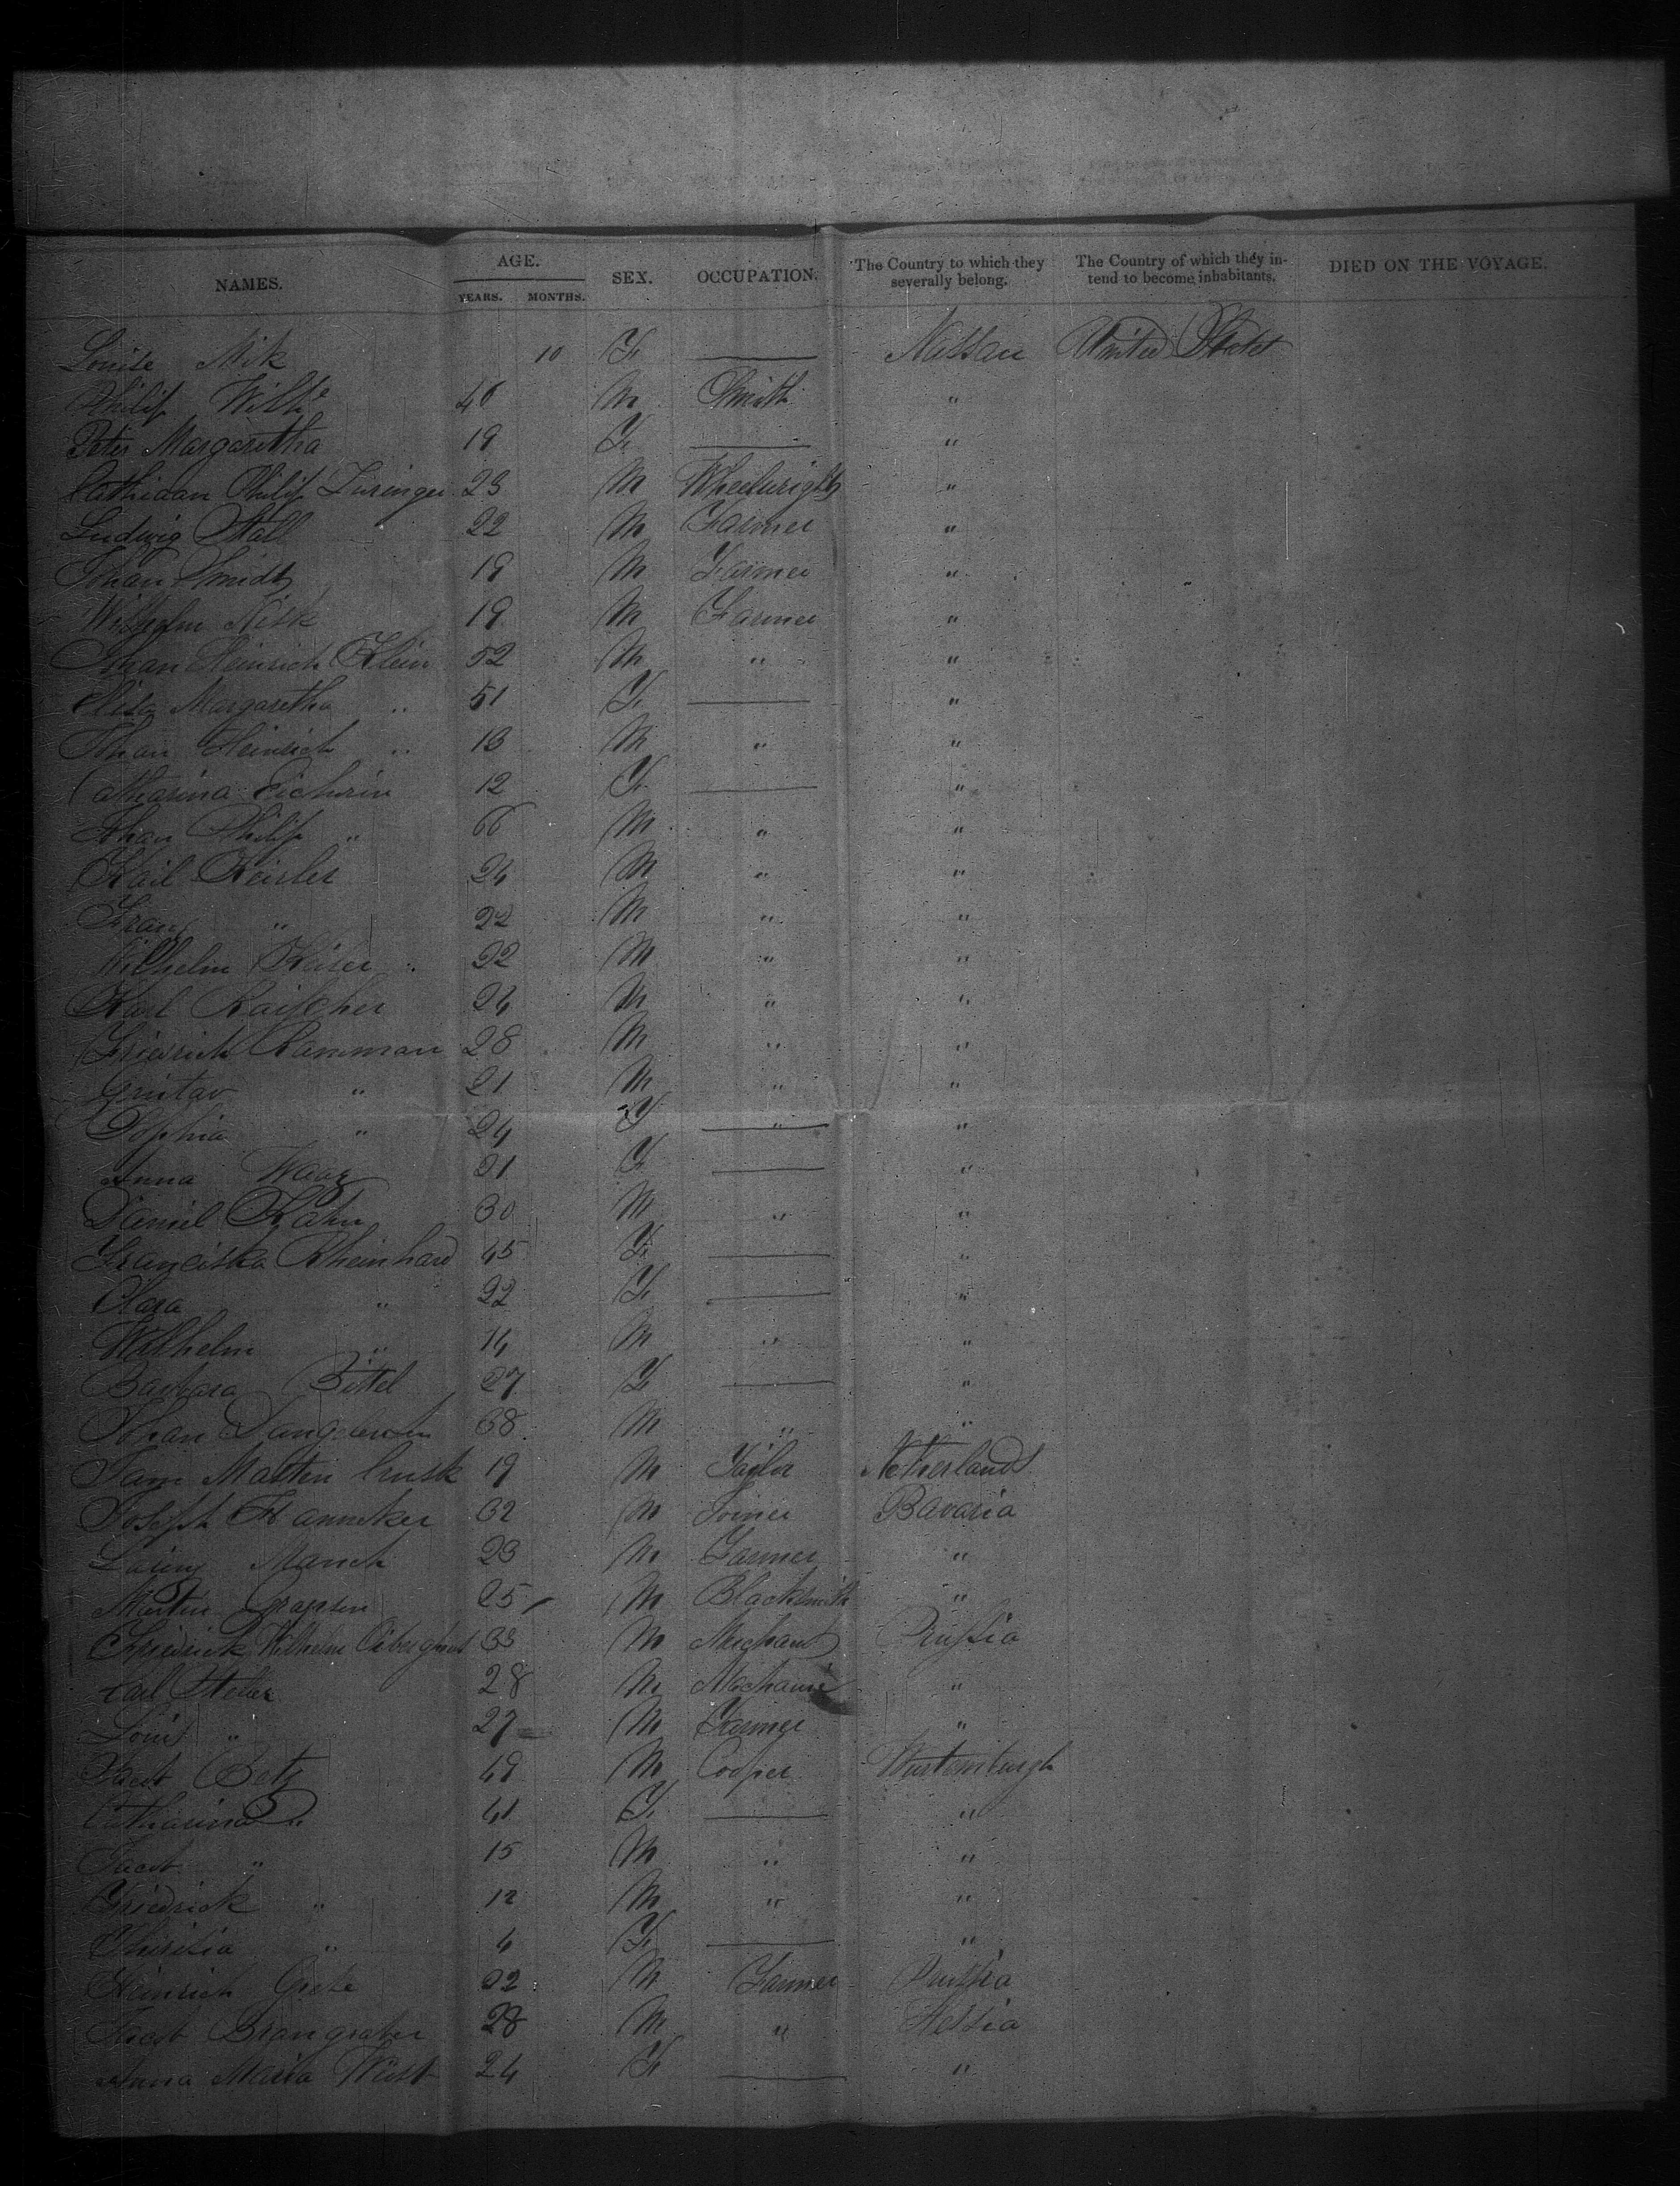 NAMES. AGE. YEARS. MONTHS. SEX. OCCUPATION. The Country to which they severally belong. The Country of which they intend to become inhabitants. DIED ON THE VOYAGE.
Louise Mik 10 F — Nassau United States
Philip 46 M Smith "
Peter Margaretha 19 F — "
Philip 23 M Wheelwright "
Ludwig Stall 22 M Farmer "
Johan Smidt 19 M Farmer "
Wilhelm 19 M Farmer "
Johan Heinrich Klein 52 M " "
Elisa Margaretha " 51 F — "
Johan Heinrich " 13 M " "
Catharina 12 F — "
Johan Philip " 66 M " "
Karl Keisler 24 M " "
Franz " 22 M " "
Wilhelm Kaiser 22 M " "
Karl 24 M " "
Friedrich Ramman 28 M " "
Gustav " 21 M " "
Sophia " 24 F — "
Anna 21 F — "
Daniel Kahn 30 M " "
Franciska Rheinhard 45 F — "
Clara " 22 F — "
Wilhelm " 14 M " "
Barbara Bittel 27 F — "
Johan 38 M " "
Martin 19 M Tailor Netherlands
Joseph Hanneker 32 M Joiner Bavaria
March 23 M Farmer "
Martin 25 M Blacksmith "
Friedrick Wilhelm 33 M Merchant Prussia
Carl 28 M Mechanic "
Louis " 27 M Farmer "
Jacob Betz 49 M Cooper Wurtemburgh
Catharina " 41 F — "
Jacob " 15 M " "
Friedrick " 12 M " "
" 4 F — "
Heinrich Grete 32 M Farmer Prussia
Jacob Brangraber 28 M " Hessia
Anna Maria Wust 24 F — "